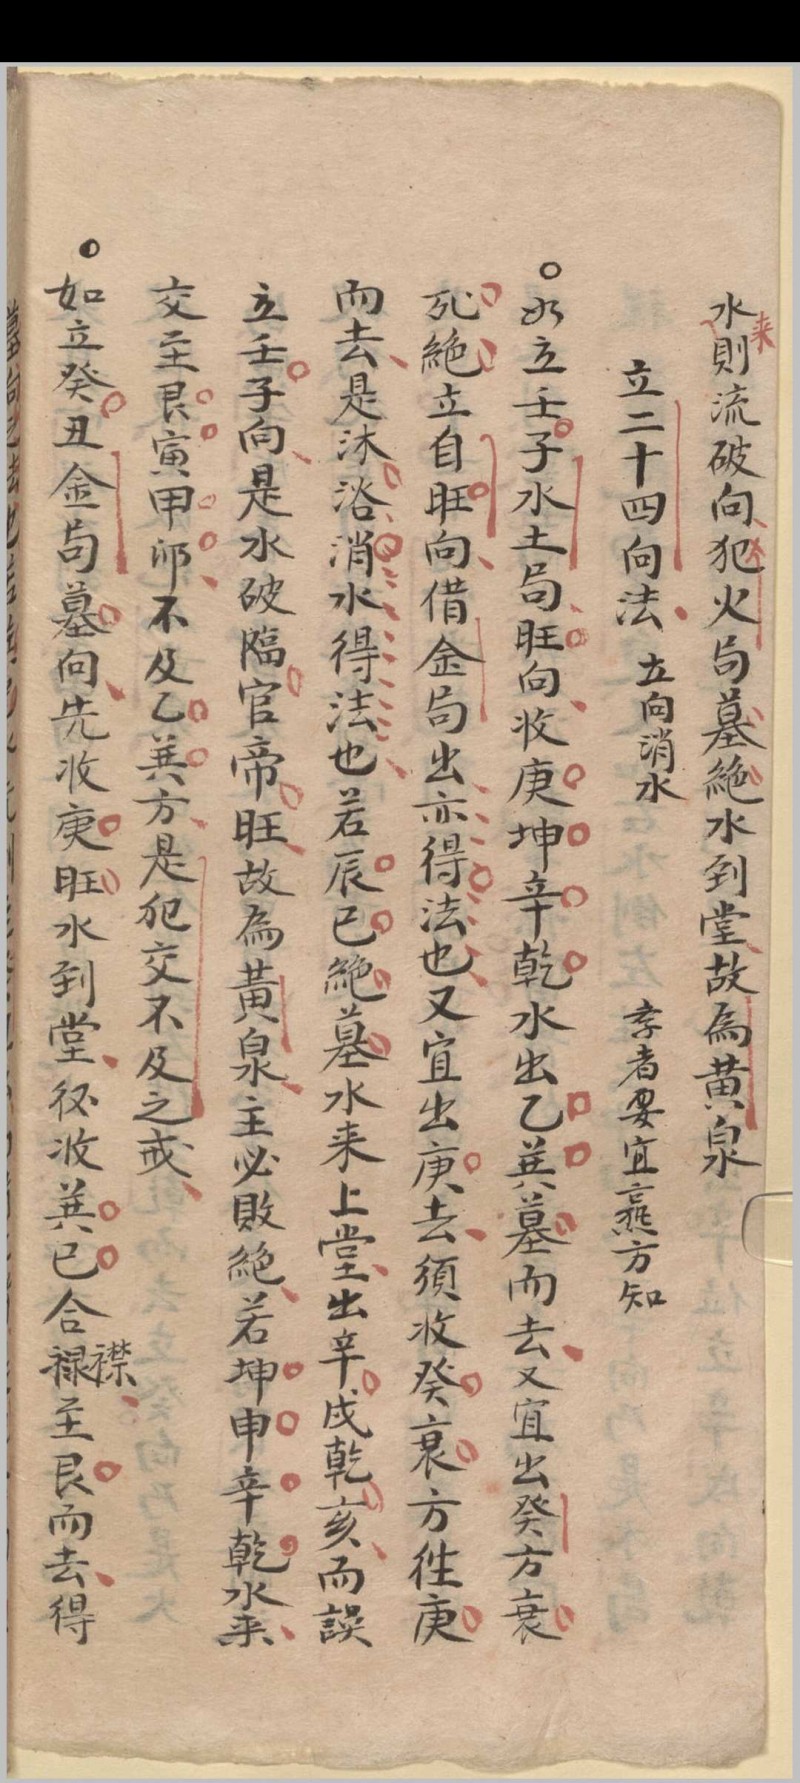 水来則流破向犯火局墓絶水到堂故為黄泉
立二十四向法 立向消水 孝者要宜 方知
如立壬子水土局旺向收庚坤辛乾水出乙巽墓而去又宜出癸方衰
死絶立自旺向借金局出亦得法也又宜出庚去須收癸衰方徃庚
而去是沐浴消水得法也若辰巳絶墓水来上堂出辛戌乾亥而誤
立壬子向是水破臨官帝旺故為黄泉主必敗絶若坤申辛乾水来
交至艮寅甲卯不及乙巽方是犯交不及之戒
如立癸丑金局墓向先收庚旺水到堂後收巽巳合襟禄至艮而去得